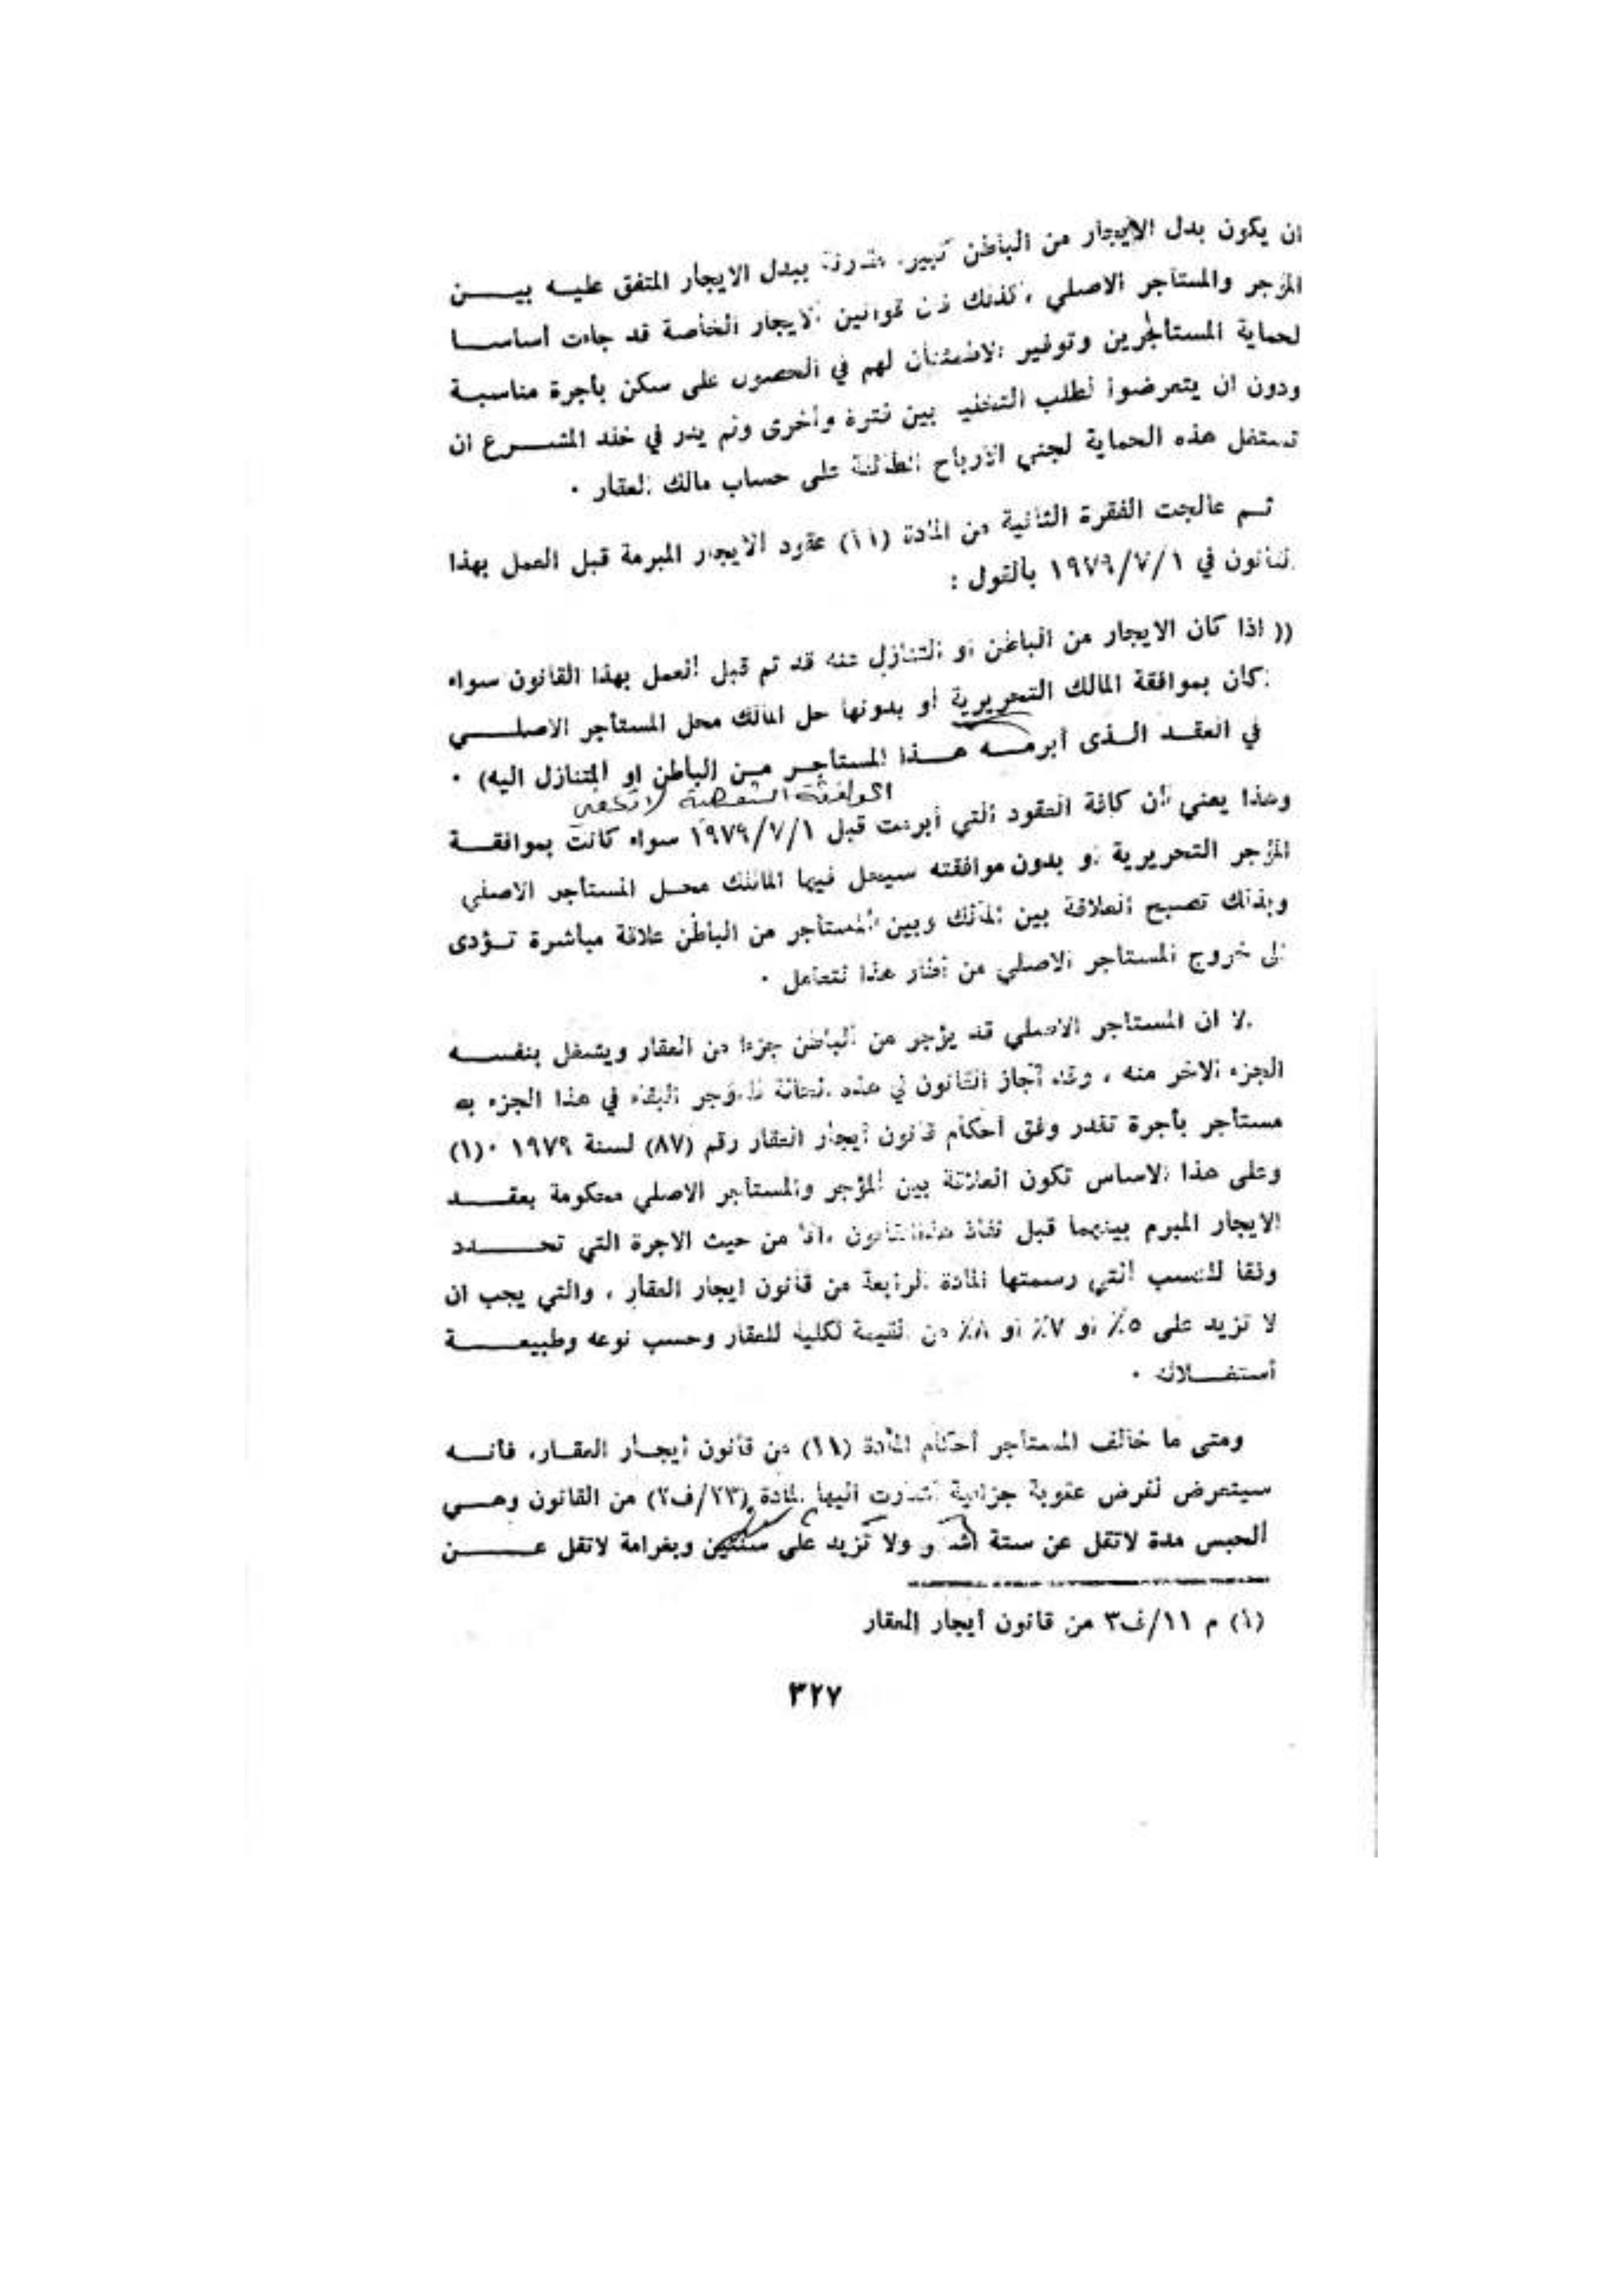 ان يكون بدل الايجار من الباطن كبيرا مقارنة ببدل الايجار المتفق عليه بيـــن
المؤجر والمستأجر الاصلي ، كذلك فان قوانين الايجار الخاصة قد جاءت أساســا
لحماية المستأجرين وتوفير الاطمئنان لهم في الحصول على سكن بأجرة مناسبـة
ودون ان يتعرضوا لطلب التخلية بين فترة وأخرى ولم يدر في خلد المشـــرع ان
تستغل هذه الحماية لجني الارباح الطائلة على حساب مالك العقار .
ثـم عالجت الفقرة الثانية من المادة (١١) عقود الايجار المبرمة قبل العمل بهذا
القانون في ١٩٧٩/٧/١ بالقول :
(( اذا كان الايجار من الباطن او التنازل عنه قد تم قبل العمل بهذا القانون سواء
كان بموافقة المالك التحريرية أو بدونها حل المالك محل المستأجر الاصلـــي
في العقـد الـذى أبرمـــه هـــذا المستأجـر مـن الباطن او المتنازل اليه) .
الموافقة الشفهية لا تكفي
وهذا يعني ان كافة العقود التي أبرمت قبل ١٩٧٩/٧/١ سواء كانت بموافقــة
المؤجر التحريرية او بدون موافقته سيحل فيها المالك محـل المستأجر الاصلي
وبذلك تصبح العلاقة بين المالك وبين المستأجر من الباطن علاقة مباشرة تـؤدى
الى خروج المستأجر الاصلي من أطار هذا التعامل .
الا ان المستاجر الاصلي قد يؤجر من الباطن جزءا من العقار ويشغل بنفســه
الجزء الاخر منه ، وقد أجاز القانون في هذه الحالة للمؤجر البقاء في هذا الجزء به
مستأجر بأجرة تقدر وفق أحكام قانون أيجار العقار رقم (٨٧) لسنة ١٩٧٩ .(١)
وعلى هذا الاساس تكون العلاقة بين المؤجر والمستأجر الاصلي محكومة بعقـــد
الايجار المبرم بينهما قبل نفاذ هذا القانون من حيث الاجرة التي تحـــدد
وفقا للنسب التي رسمتها المادة الرابعة من قانون ايجار العقار ، والتي يجب ان
لا تزيد على ٥٪ او ٧٪ او ٨٪ من القيمة الكلية للعقار وحسب نوعه وطبيعـــة
أستغـــلاله .
ومتى ما خالف المستأجر أحكام المادة (١١) من قانون أيجـار العقـار، فانـــه
سيتعرض لفرض عقوبة جزائية أشارت اليها المادة (٢٣/ف٢) من القانون وهــي
الحبس مدة لاتقل عن ستة أشهر ولا تزيد على سنتين وبغرامة لاتقل عـــــن
(١) م ١١/ف٣ من قانون أيجار العقار
٣٢٧